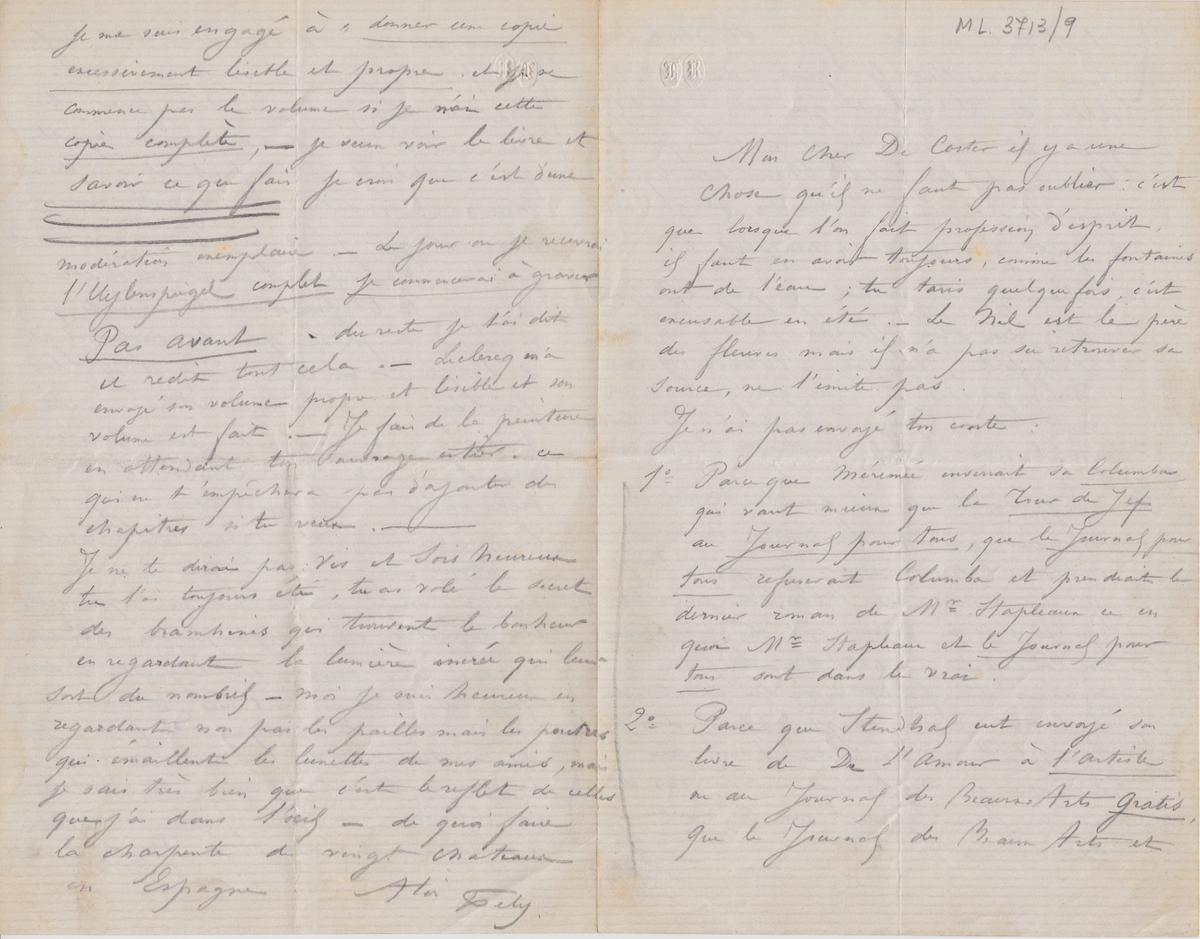 M L. 3713/9
Mon Cher De Coster il y a une
chose qu'il ne faut pas oublier : c'est
que lorsque l'on fait profession d'esprit,
il faut en avoir toujours, comme les fontaines
ont de l'eau ; tu taris quelquefois, c'est
excusable en été. — Le Nil est le père
des fleuves mais il n'a pas su retrouver sa
source, ne l'imite pas.
Je n'ai pas envoyé ton conte :
1º Parce que Mérimée enverrait sa Columba
qui vaut mieux que la Tour de Jef
au Journal pour tous, que le Journal pour
tous refuserait Columba et prendrait le
dernier roman de Mr Stapleaux ce en
quoi Mr Stapleaux et le Journal pour
tous sont dans le vrai.
2º Parce que Stendhal eut envoyé son
livre de De L'Amour à l'artiste
ou au Journal des Beaux Arts Gratis,
que le Journal des Beaux Arts et
Je me suis engagé à " donner une copie
excessivement lisible et propre. et je ne
commence pas le volume si je n'ai cette
copie complète, — je veux voir le livre et
savoir ce que fais je crois que c'est d'une
modération exemplaire. — Le jour où je recevrai
l'Uylenspiegel complet je commencerai à graver
Pas avant. du reste je t'ai dit
et redit tout cela. — Leclercq m'a
envoyé son volume propre et lisible et son
volume est fait. — Je fais de la peinture
en attendant ton ouvrage entier. ce
qui ne t'empêchera pas d'ajouter des
chapitres si tu veux. —
Je ne te dirai pas : Vis et Sois heureux
tu l'as toujours été, tu as volé le secret
des brahmines qui trouvent le bonheur
en regardant la lumière incréé qui leur
sort du nombril — moi je suis heureux en
regardant non pas les pailles mais les poutres
qui émaillent les lunettes de mes amis, mais
je sais très bien que c'est le reflet de celles
que j'ai dans l'œil — de quoi faire
la charpente de vingt chateaux
en Espagne.